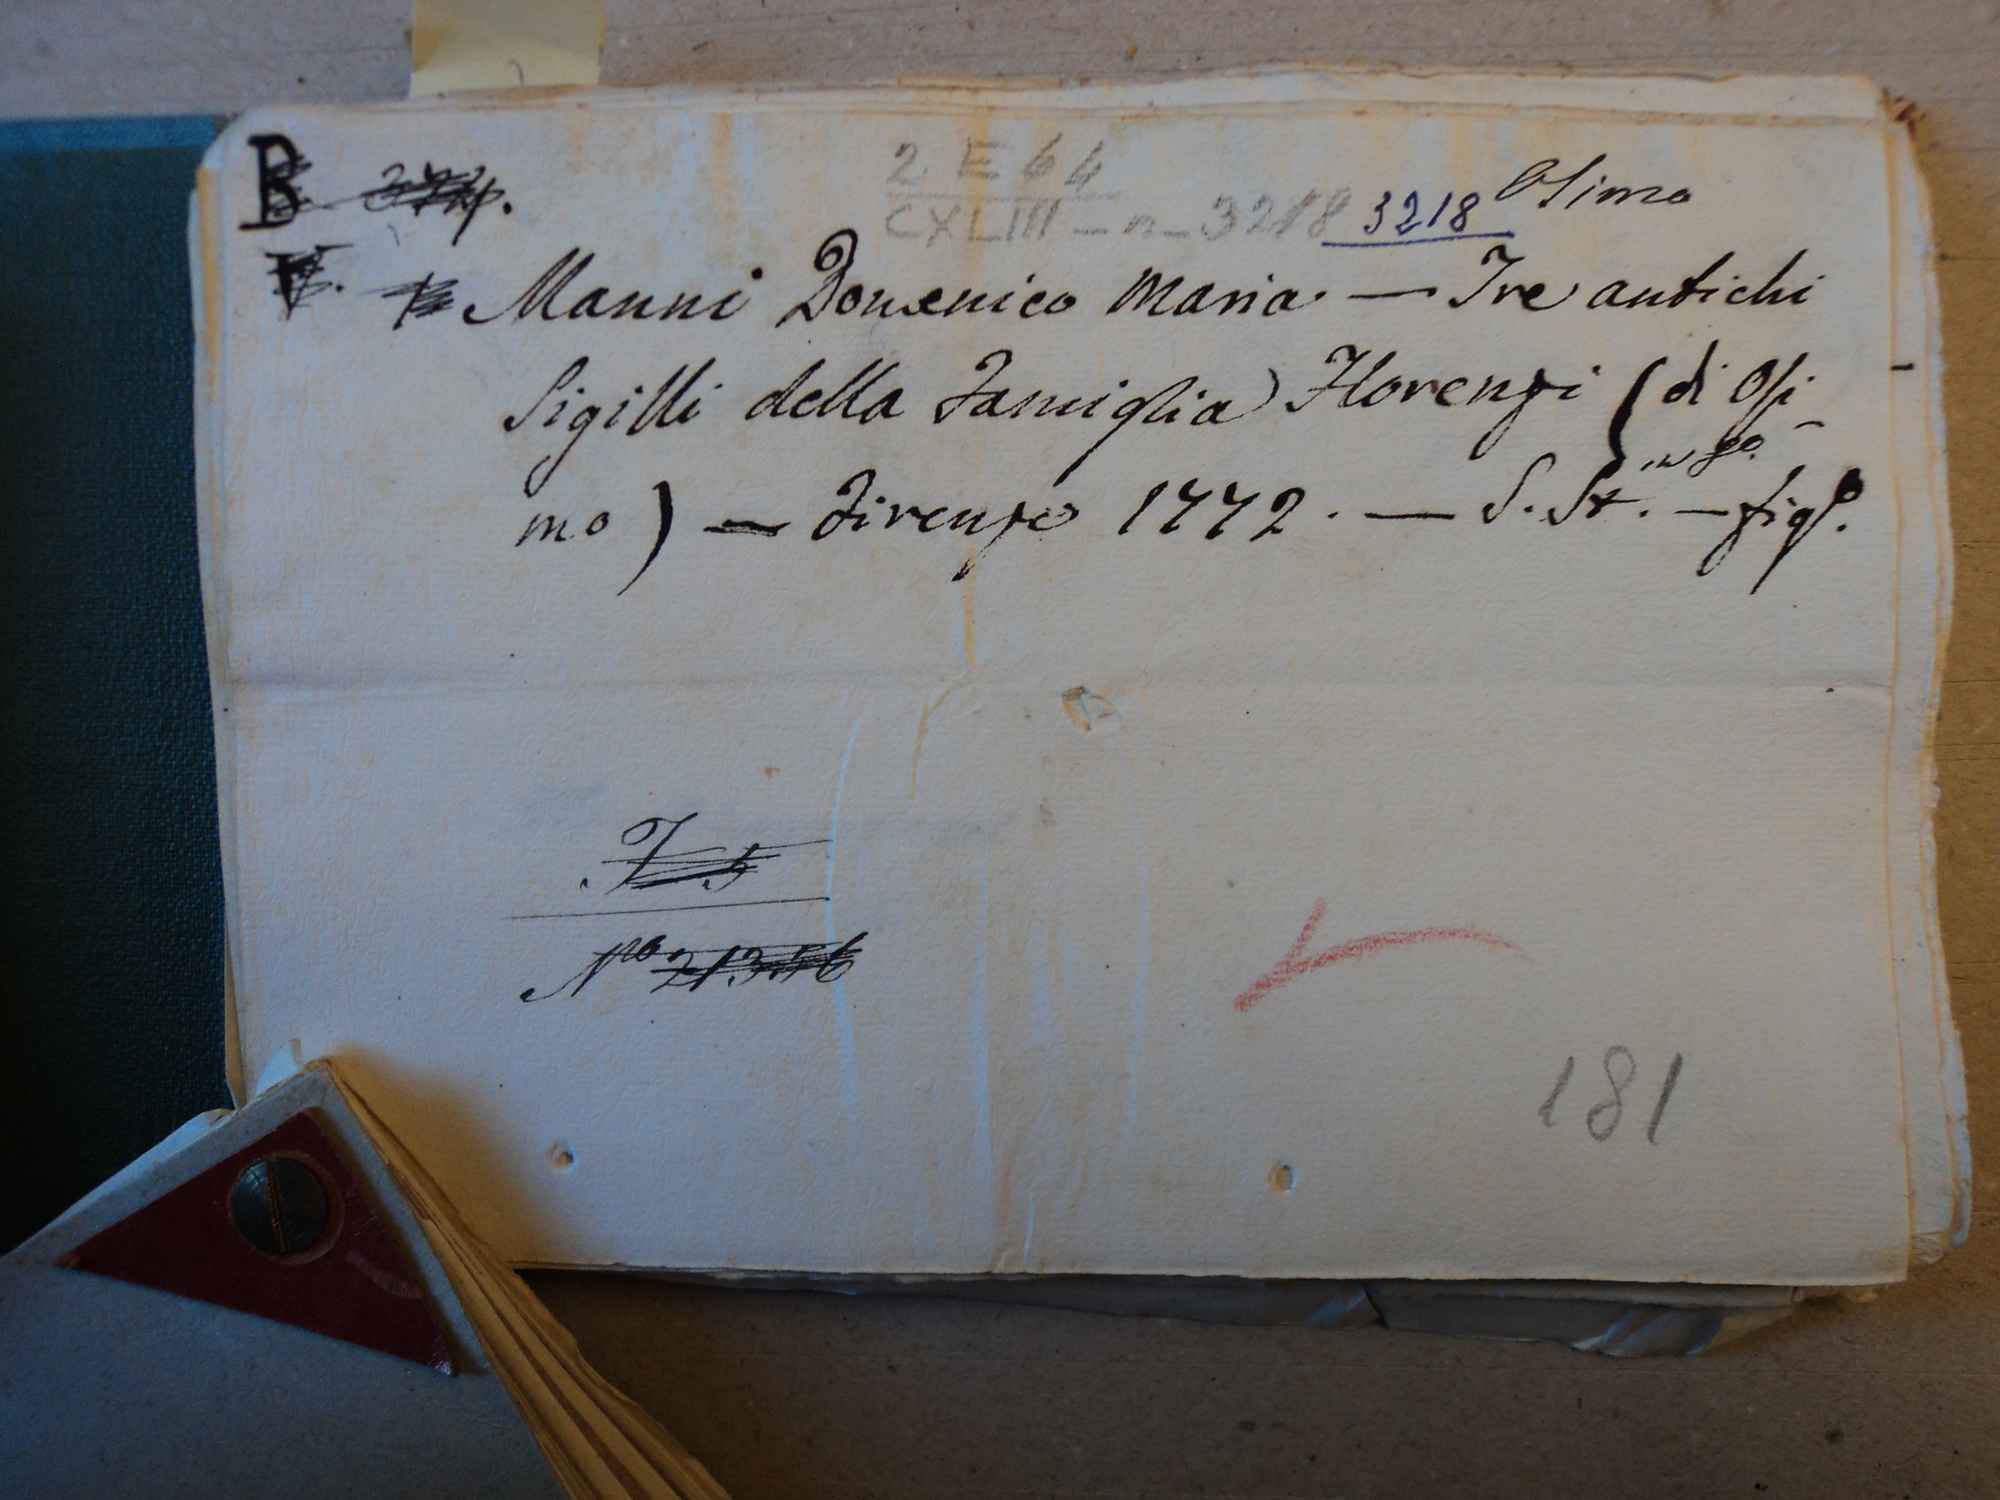 B. 374.
2 E 64
CXLIII - n - 3218 3218 Osimo
Manni Domenico Maria — Tre antichi
Sigilli della Famiglia Florenzi (di Osi-
mo) — Firenze 1772. — S. St. in 8o. — figo.
N.o 21356
181